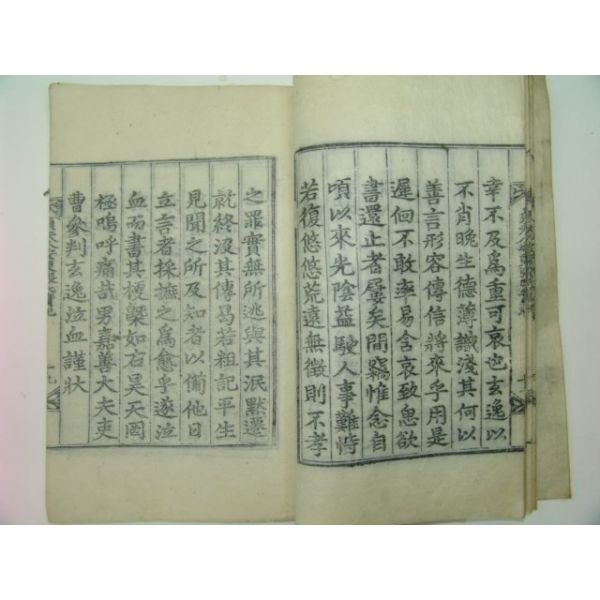 幸不及爲重可哀也玄逸以
不肖晚生德薄識淺其何以
善言形容傳信將來乎用是
遲徊不敢率易含哀致思欲
書還止者屢矣間竊惟念自
頃以來光陰益駛人事難恃
若復悠悠荒遠無徵則不孝
之罪實無所逃與其泯默遷
就終沒其傳曷若粗記平生
見聞之所及知者以備他日
立言者採摭之爲愈乎遂泣
血而書其梗槩如右昊天罔
極嗚呼痛哉男嘉善大夫吏
曹參判玄逸泣血謹狀